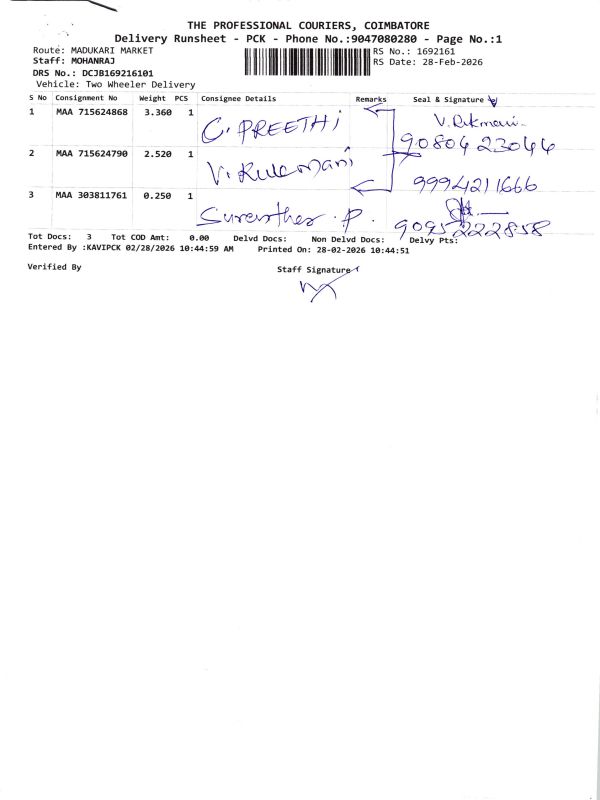 THE PROFESSIONAL COURIERS, COIMBATORE
Delivery Runsheet - PCK - Phone No.:9047080280 - Page No.:1
Route: MADUKARI MARKET
RS No.: 1692161
Staff: MOHANRAJ
RS Date: 28-Feb-2026
DRS No.: DCJB169216101
Vehicle: Two Wheeler Delivery
S No Consignment No Weight PCS Consignee Details Remarks Seal & Signature
1 MAA 715624868 3.360 1 C. PREETHi
9080423044
2 MAA 715624790 2.520 1
9994211666
3 MAA 303811761 0.250 1
9095222858
Tot Docs: 3 Tot COD Amt: 0.00 Delvd Docs: Non Delvd Docs: Delvy Pts:
Entered By :KAVIPCK 02/28/2026 10:44:59 AM Printed On: 28-02-2026 10:44:51
Verified By
Staff Signature